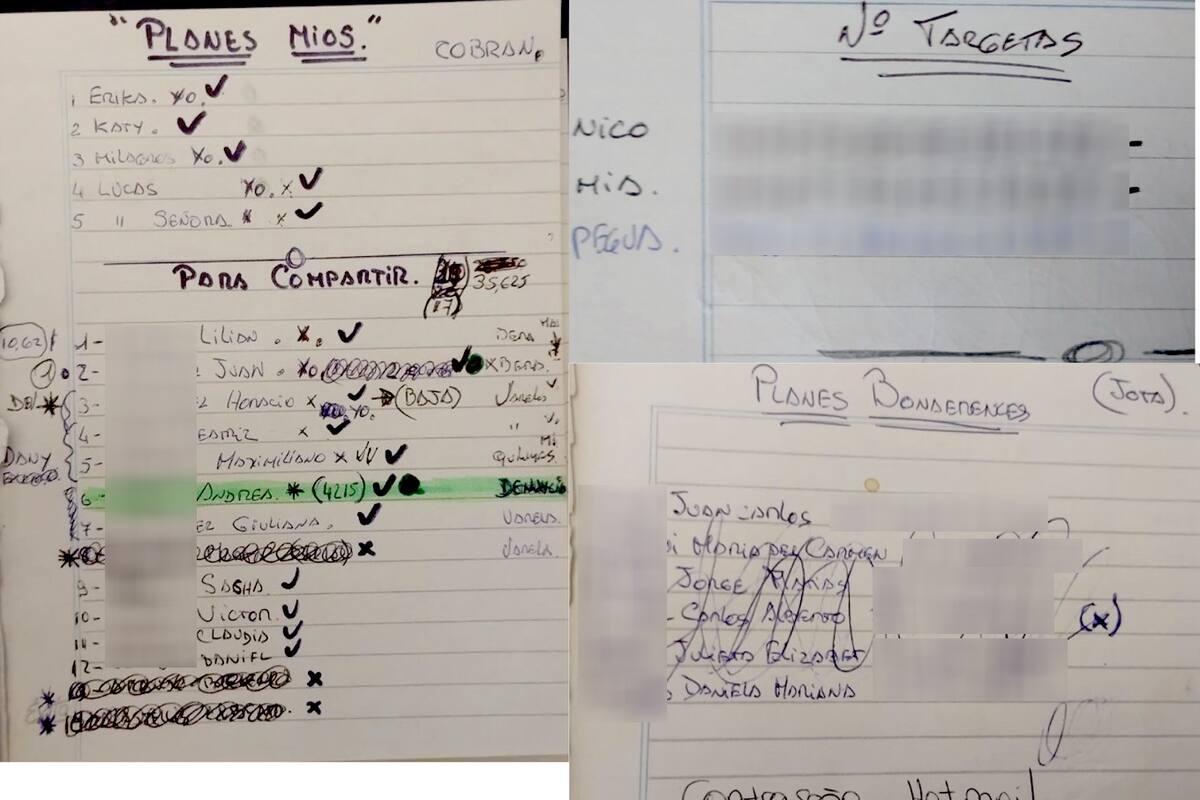 "PLANES MIOS."
COBRAN.
1 ERIKA. YO. ✓
2 KATY. ✓
3 MILAGROS YO. ✓
4 LUCAS YO. X ✓
5 " SEÑORA. * X ✓
PARA COMPARTIR.
35,625
(17)
10,62
1- LILIAN. X. ✓
1 2- JUAN. YO. ✓ X BERA.
DEL * 3- EZ HORACIO X ✓ (BAJA) VARELA
4- EATRIZ X ✓ "
DANY
5- MAXIMILIANO X ✓✓ ✓ QUILMES
6- ANDREA. * (4215) ✓
7- EZ GIULIANA. ✓ VARELA.
* X VARELA.
9- SASHA ✓
10- VICTOR ✓
11- CLAUDIA ✓
12- DANIEL ✓
* X
* X
Nº TARGETAS
NICO
MIA.
PEGUA.
PLANES BONAERENCES (JOTA).
JUAN CARLOS
MARIA DEL CARMEN
JORGE
CARLOS ALBERTO (X)
JULIETA ELIZABET
DANIELA MARIANA
CONTRASEÑA HOTMAIL